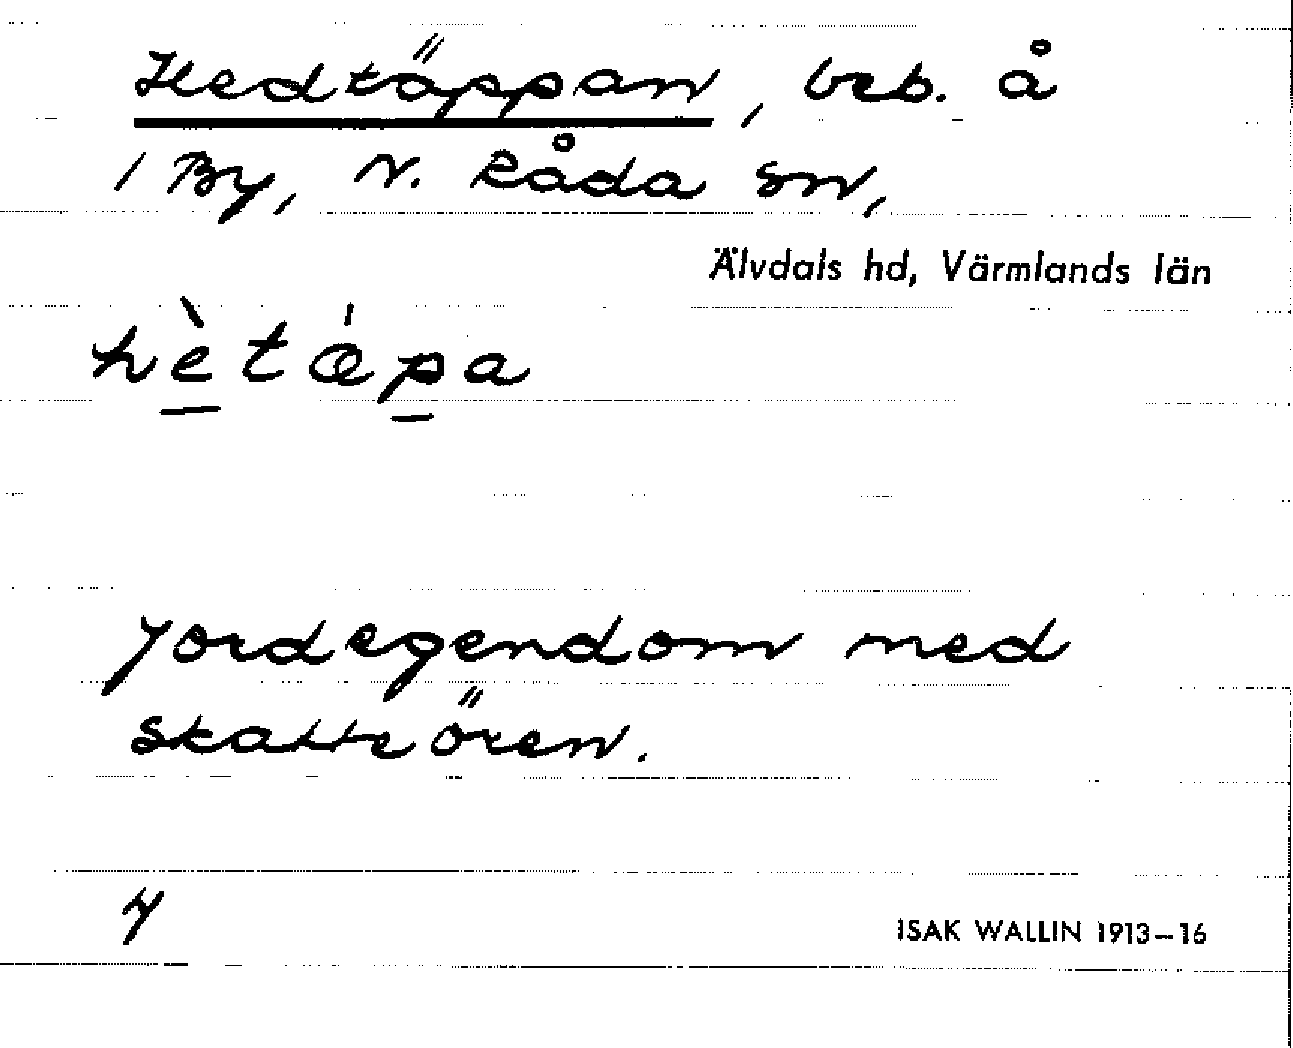 Hedtäppan, beb. å
1 By, N. Råda sn,
Älvdals hd, Värmlands län
hètǽpa
Jordegendom med
skatteören.
4
ISAK WALLIN 1913–16